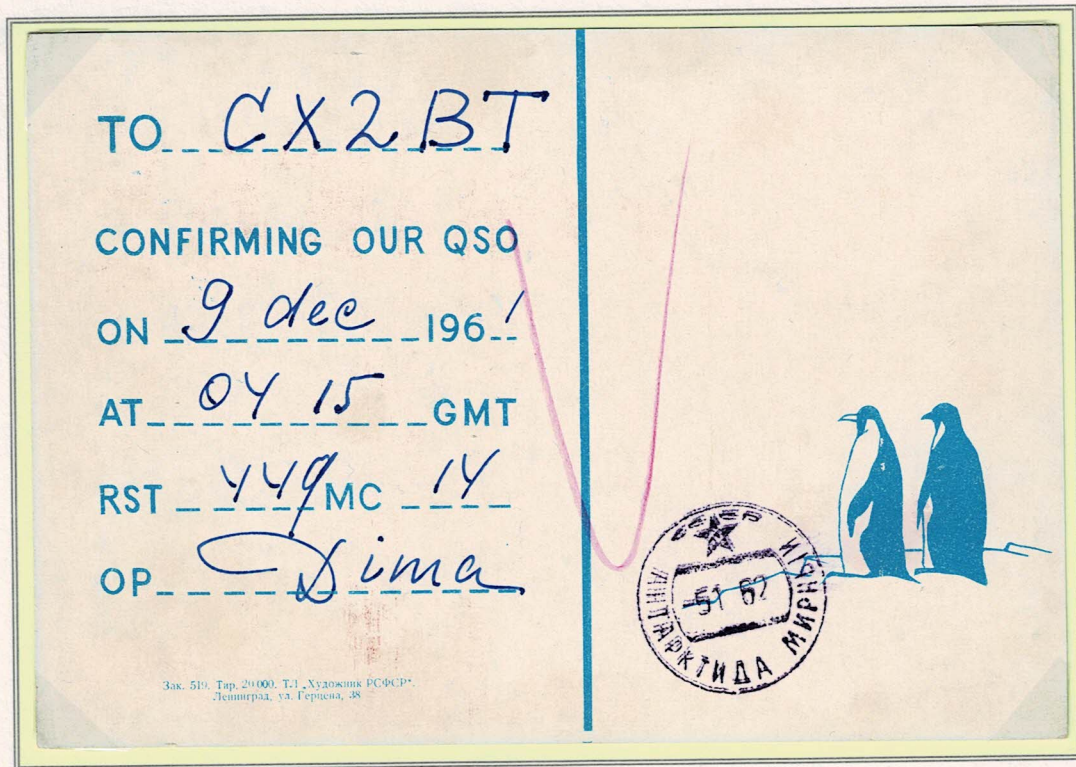 TO CX2BT
CONFIRMING OUR QSO
ON 9 dec 1961
AT 04 15 GMT
RST 449 MC 14
OP Dima
Зак. 519. Тир. 20 000. ТЛ „Художник РСФСР“.
Ленинград, ул. Герцена, 38
СССР
51 62
АНТАРКТИДА МИРНЫЙ